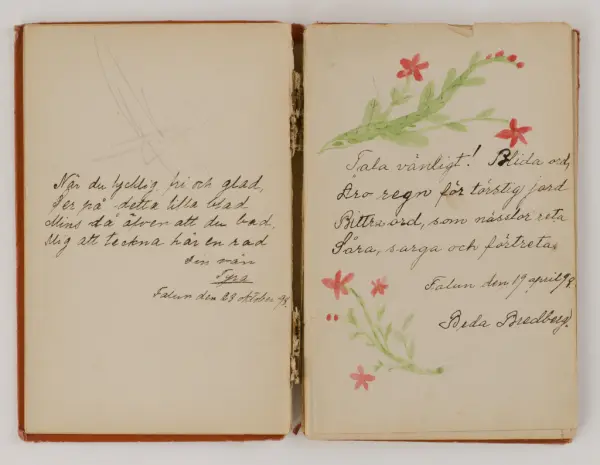 När du lycklig, fri och glad,
Ser på detta lilla blad
Mins då äfven att du bad,
Mig att teckna här en rad
din vän
Tyra
Falun den 23 oktober 98.
Tala vänligt! Blida ord,
Äro regn för törstig jord
Bittra ord, som nässlor reta
Såra, sarga och förtreta.
Falun den 19 april 98.
Beda Bredberg.